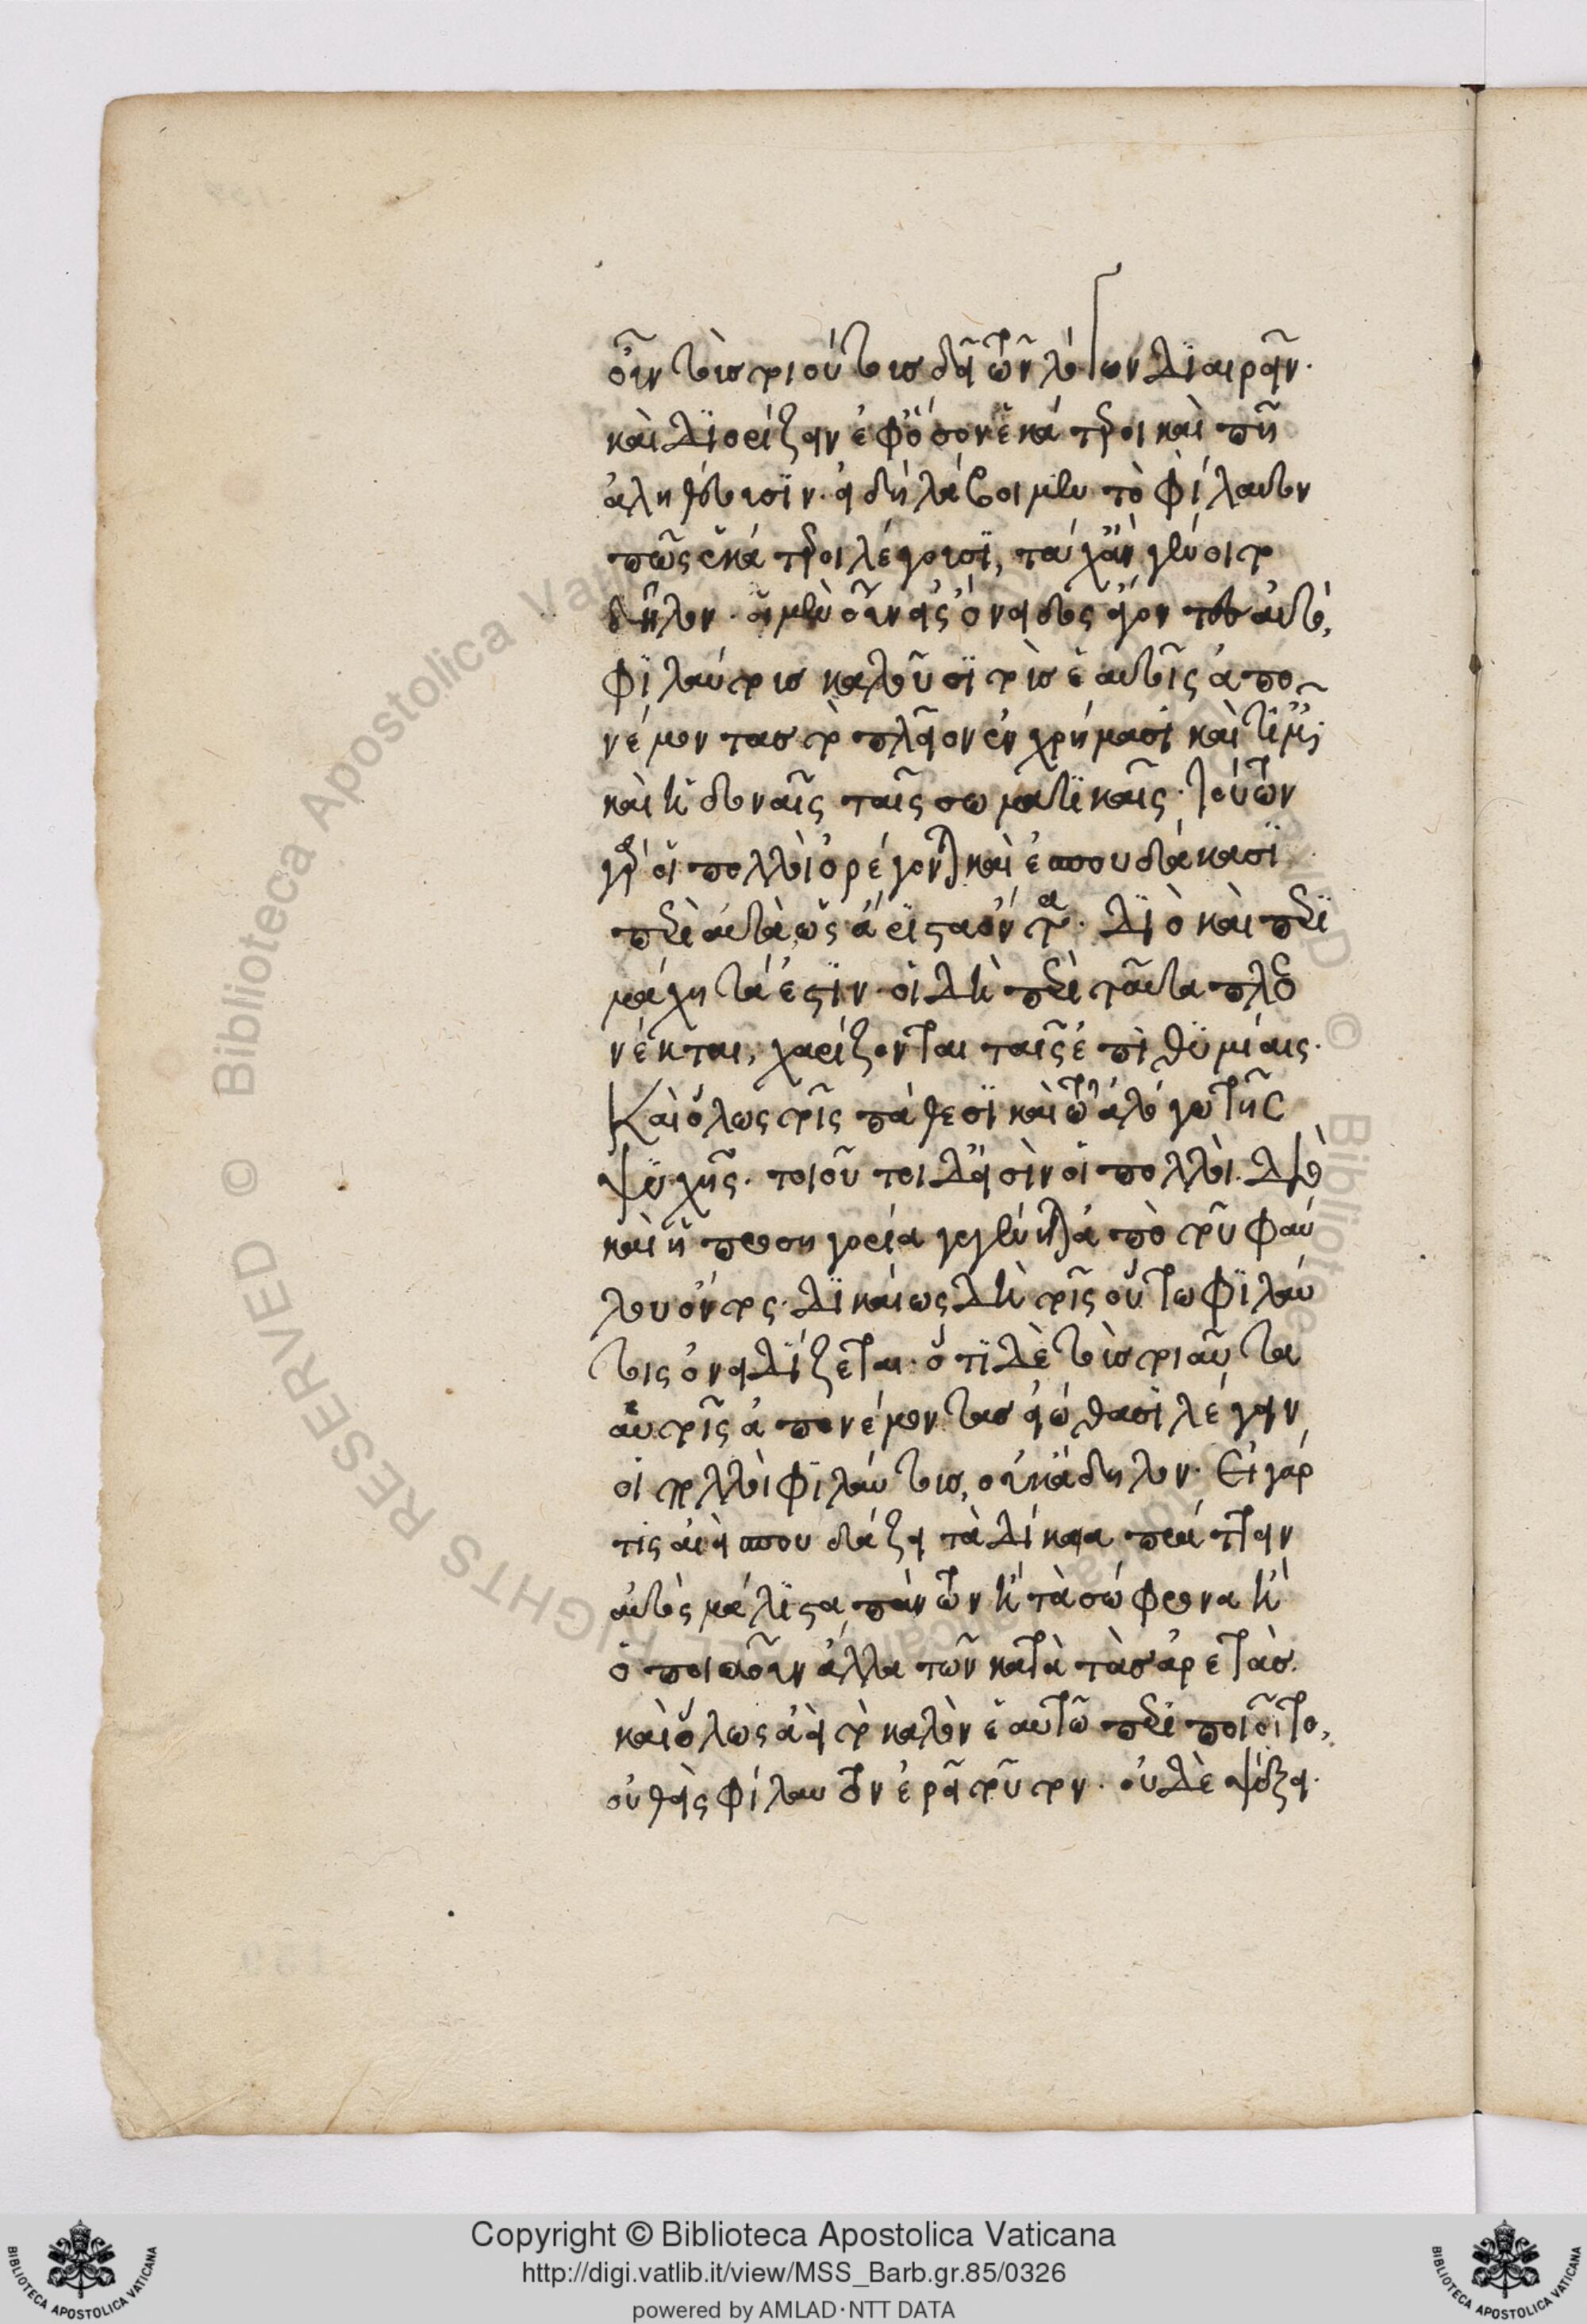 οὖν τοὺς τοιούτους δεῖ τῶν λόγων διαιρεῖν.
καὶ διορίζειν ἐφ' ὅσον ἑκάτεροι καὶ πῆ
ἀληθεύουσιν. εἰ δὴ λάβοιμεν τὸ φίλαυτον
πῶς ἑκάτεροι λέγουσι, τάχ' ἂν γένοιτο
δῆλον. οἱ μὲν οὖν εἰς ὄνειδος ἄγοντες αὐτό,
φιλαύτους καλοῦσι τοὺς ἑαυτοῖς ἀπο-
νέμοντας τὸ πλεῖον ἐν χρήμασι καὶ τιμαῖς
καὶ ἡδοναῖς ταῖς σωματικαῖς. τούτων
γὰρ οἱ πολλοὶ ὀρέγονται καὶ ἐσπουδάκασι
περὶ αὐτὰ ὡς ἄριστα ὄντα. διὸ καὶ περι
μάχητά ἐστιν. οἱ δὴ περὶ ταῦτα πλεο
νέκται, χαρίζονται ταῖς ἐπιθυμίαις.
Καὶ ὅλως τοῖς πάθεσι καὶ τῷ ἀλόγῳ τῆς
ψυχῆς. τοιοῦτοι δ' εἰσὶν οἱ πολλοί. διὸ
καὶ ἡ προσηγορία γεγένηται ἀπὸ τοῦ φαύ
λου ὄντος. δικαίως δὴ τοῖς οὕτω φιλαύ
τοις ὀνειδίζεται. ὅτι δὲ τοὺς τοιαῦτα
αὑτοῖς ἀπονέμοντας εἰώθασι λέγειν
οἱ πολλοὶ φιλαύτους, οὐκ ἄδηλον. Εἰ γάρ
τις ἀεὶ σπουδάζει τὰ δίκαια πράττειν
αὐτὸς μάλιστα πάντων ἢ τὰ σώφρονα ἢ
ὁποιαοῦν ἄλλα τῶν κατὰ τὰς ἀρετάς.
καὶ ὅλως ἀεὶ τὸ καλὸν ἑαυτῷ περιποιοῖτο,
οὐθεὶς φίλαυτον ἐρεῖ τοῦτον. οὐδὲ ψέξει.
Copyright © Biblioteca Apostolica Vaticana
http://digi.vatlib.it/view/MSS_Barb.gr.85/0326
powered by AMLAD·NTT DATA